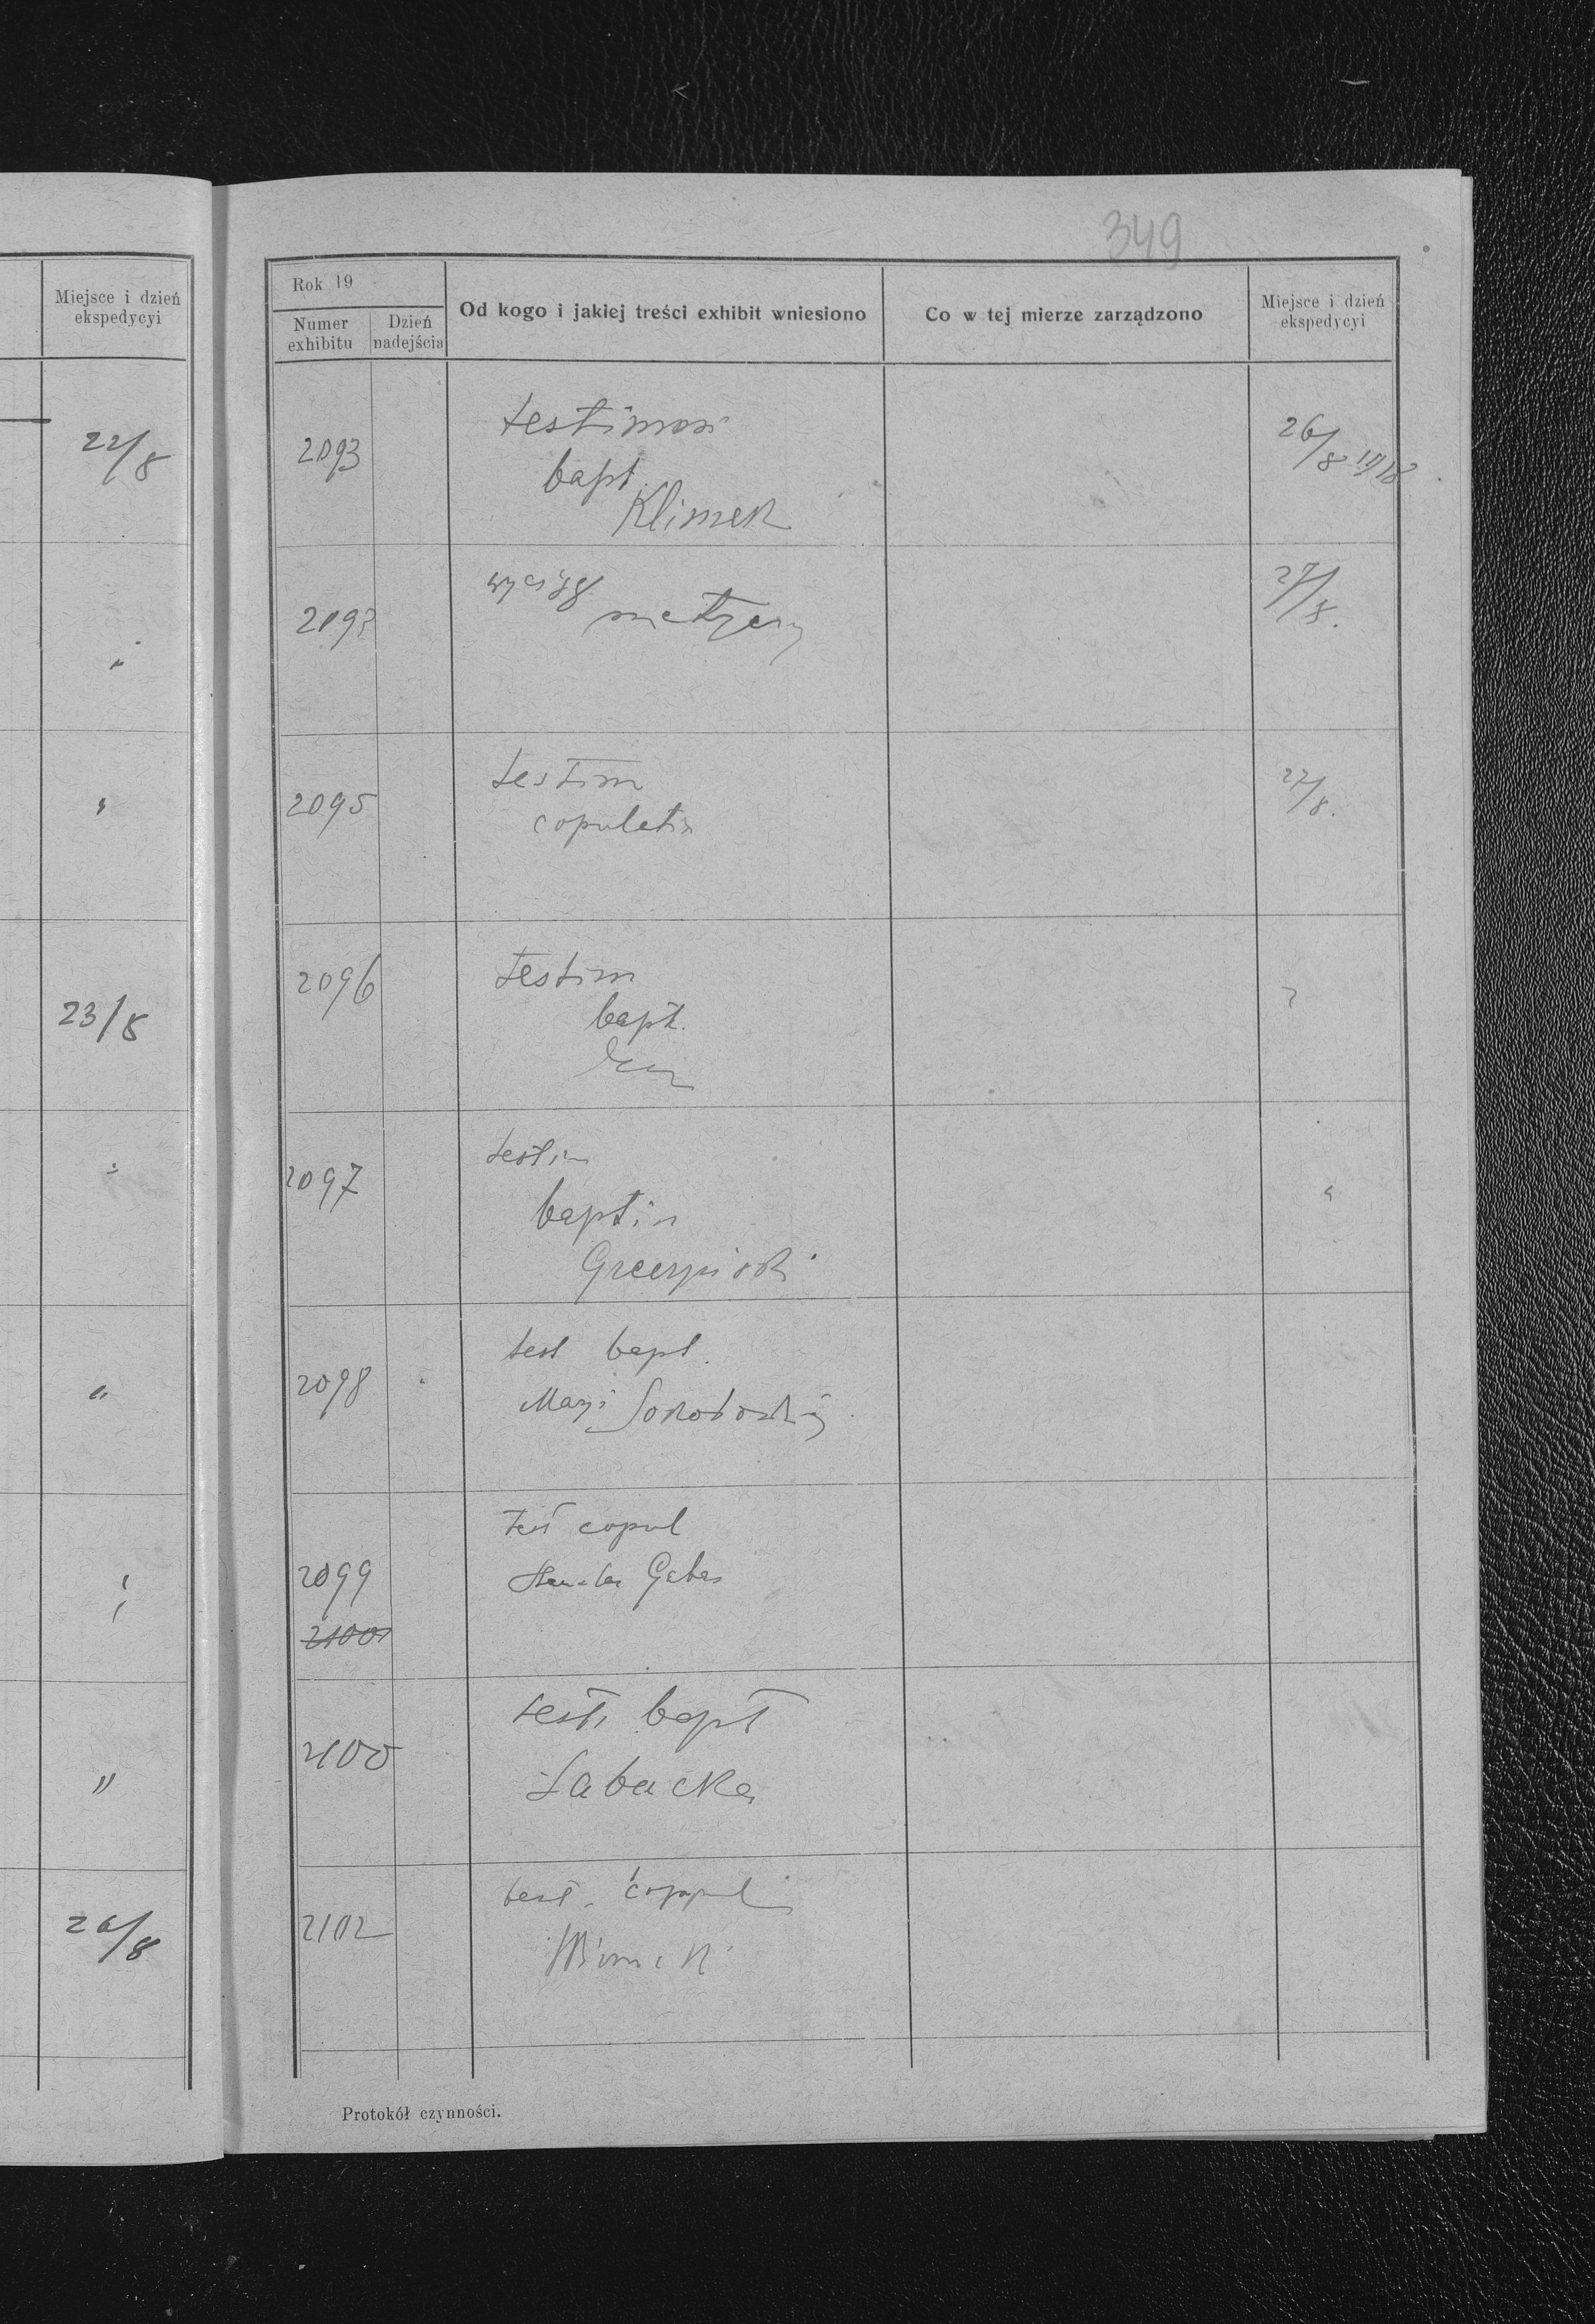 Miejsce i dzień
ekspedycyi
22/8
"
"
23/8
"
"
"
"
26/8
349
Rok 19
Numer
exhibitu
Dzień
nadejścia
Od kogo i jakiej treści exhibit wniesiono
Co w tej mierze zarządzono
Miejsce i dzień
ekspedycyi
2093
testimon
bapt.
Klimek
26/8 1918
2093
wyciąg metryczny
27/8.
2095
testim
copulatio
27/8.
2096
testim
bapt.
2097
testim
baptis
"
2098
test bapt.
Maryi
2099
2100
test copul
Gabes
2100
test bapt
Łabucka
2102
test. copul
Protokół czynności.